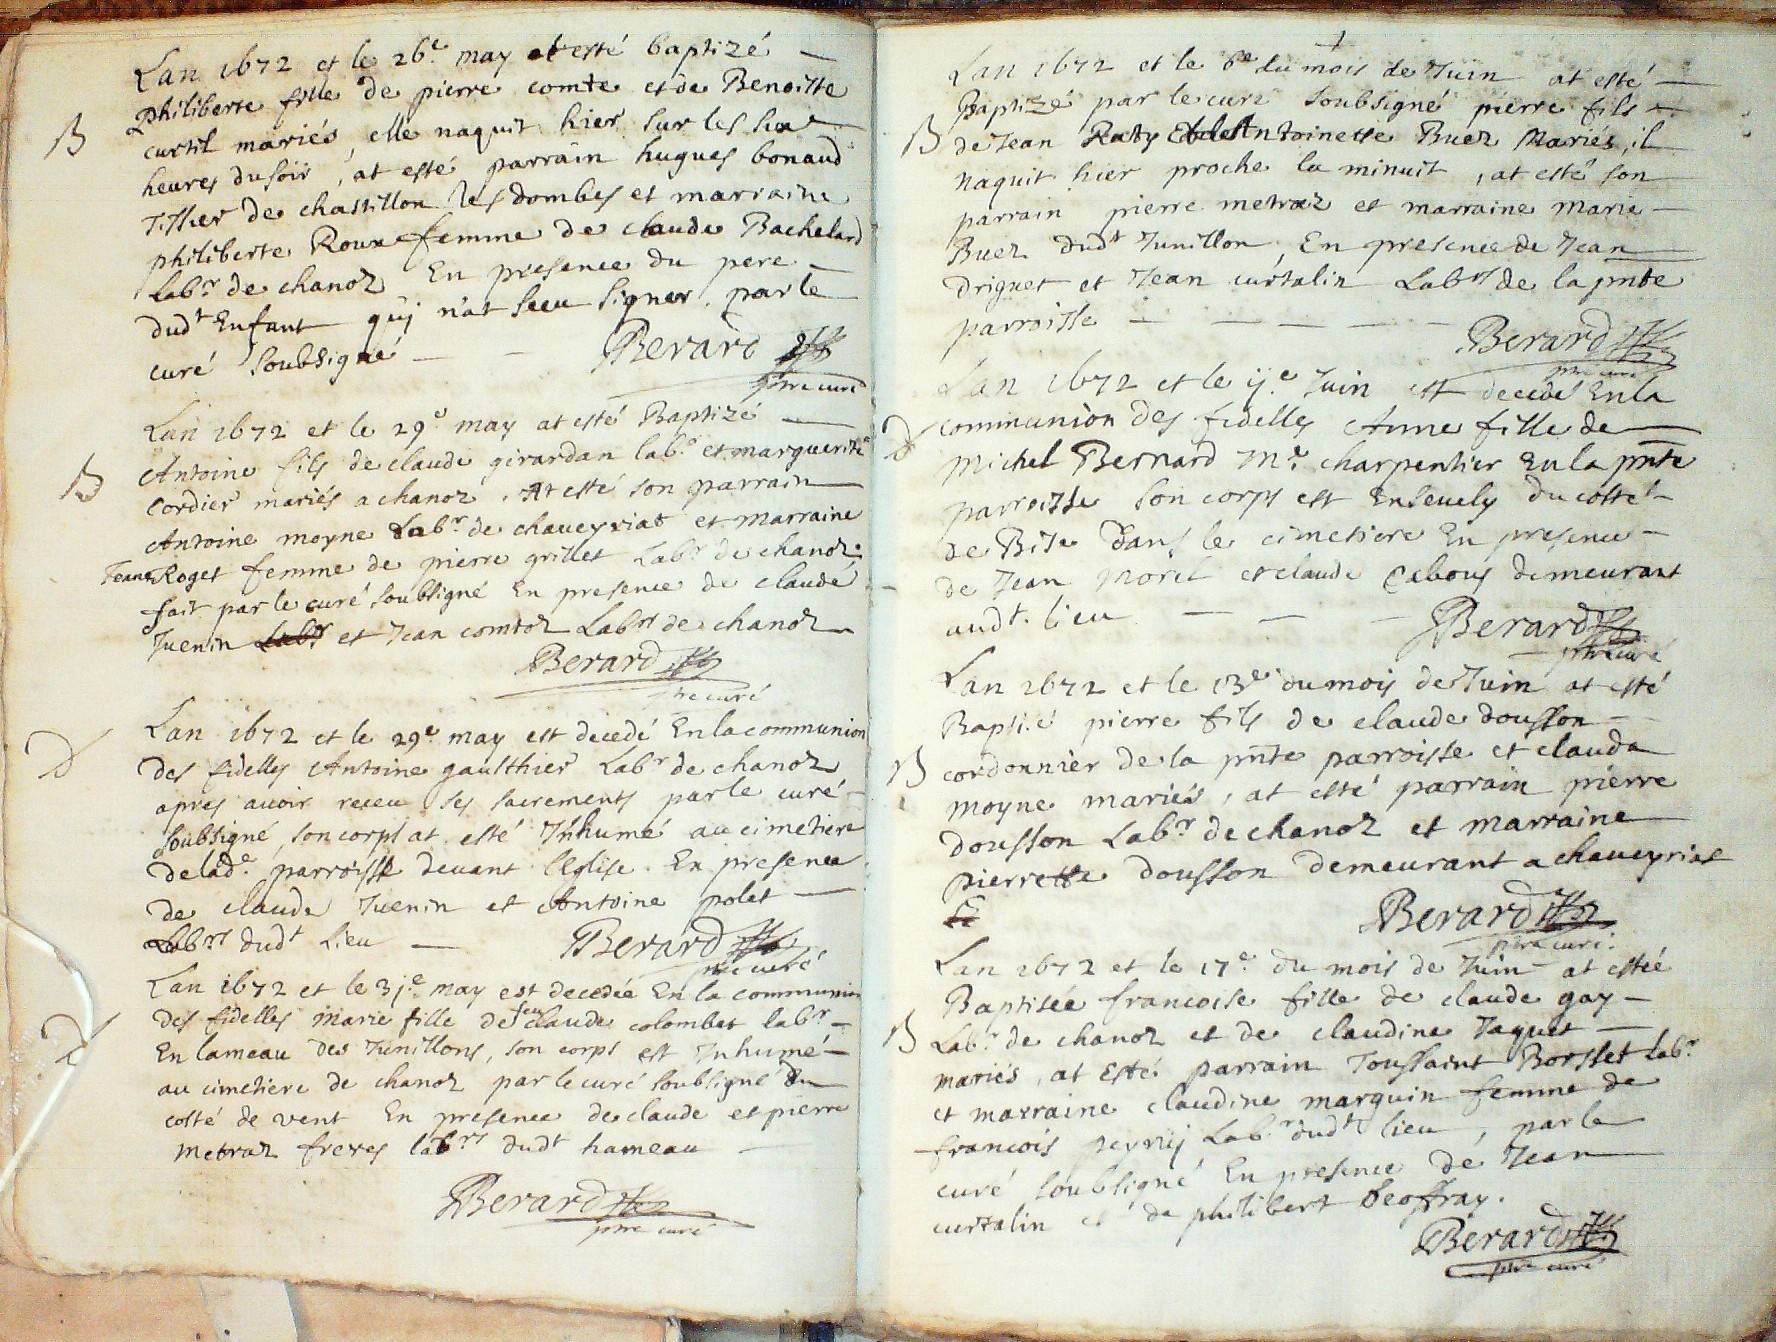 Lan 1672 et le 26e may at esté baptizé
B
philiberte fille de pierre comte et de Benoiste
curtil mariés, elle naquit hier sur les
heures du soir, at esté parrain hugues bonaud
Tissier de chastillon les dombes et marraine
philiberte Roux femme de claude Bachelard
labr de chanoz En presence du pere
dudt Enfant quj n'at sceu signer, par le
curé soubsigné
Berard
ptre curé
Lan 1672 et le 29e may at esté Baptizé
Antoine fils de claude girardan labr et marguerite
B
cordier mariés a chanoz. At esté son parrain
Antoine moyne Labr de chaveyriat et marraine
Jeane Roget femme de pierre grillet Labr de chanoz
fait par le curé soubsigné En presence de claude
Juenin Labr et Jean comtoz Labrs de chanoz
Berard
ptre curé
Lan 1672 et le 29e may est decedé En la communion
D
des fidelles Antoine gaulthier Labr de chanoz
apres avoir receu ses sacrements par le curé
soubsigné, son corps at esté Inhumé au cimetiere
de lade parroisse devant l'Eglise. En presence
de claude Juenin et Antoine polet
Labrs dudt lieu
Berard
ptre curé
Lan 1672 et le 31e may est decedée En la communion
des fidelles marie fille de feu claude colombet labr
D
En lameau des Junillons, son corps est Inhumé
au cimetiere de chanoz par le curé soubsigné du
costé de vent En presence de claude et pierre
metraz freres labrs dudt hameau
Berard
ptre curé
Lan 1672 et le 6e du mois de Juin at esté
Baptizé par le curé soubsigné pierre fils
B
de Jean Raty Antoinette Buer Mariés, il
naquit hier proche la minuit, at esté son
parrain pierre metraz et marraine marie
Buer dudt Junillon, En presence de Jean
Driguet et Jean curtalin Labrs de la pnte
parroisse
Berard
ptre curé
Lan 1672 et le ije Juin est decedé En la
D
communion des fidelles Anne fille de
Michel Bernard Me charpentier En la pnte
parroisse son corps est Ensevely du costé
de Bise dans le cimetiere En presence
de Jean Morel et claude Cabouz demeurant
audt lieu
Berard
ptre curé
Lan 1672 et le 13e du mois de Juin at esté
Baptisé pierre fils de claude dousson
B
cordonnier de la pnte parroisse et clauda
moyne mariés, at esté parrain pierre
dousson Labr de chanoz et marraine
pierrette dousson demeurant a chaveyriat
Berard
ptre curé
Lan 1672 et le 17e du mois de Juin at estée
Baptisée francoise fille de claude gay
B
Labr de chanoz et de claudine Jaquet
mariés, at Esté parrain Toussaint Borsset Labr
et marraine claudine marquin femme de
francois Labr dudt lieu, par le
curé soubsigné En presence de Jean
curtalin et de philibert beoffray.
Berard
ptre curé